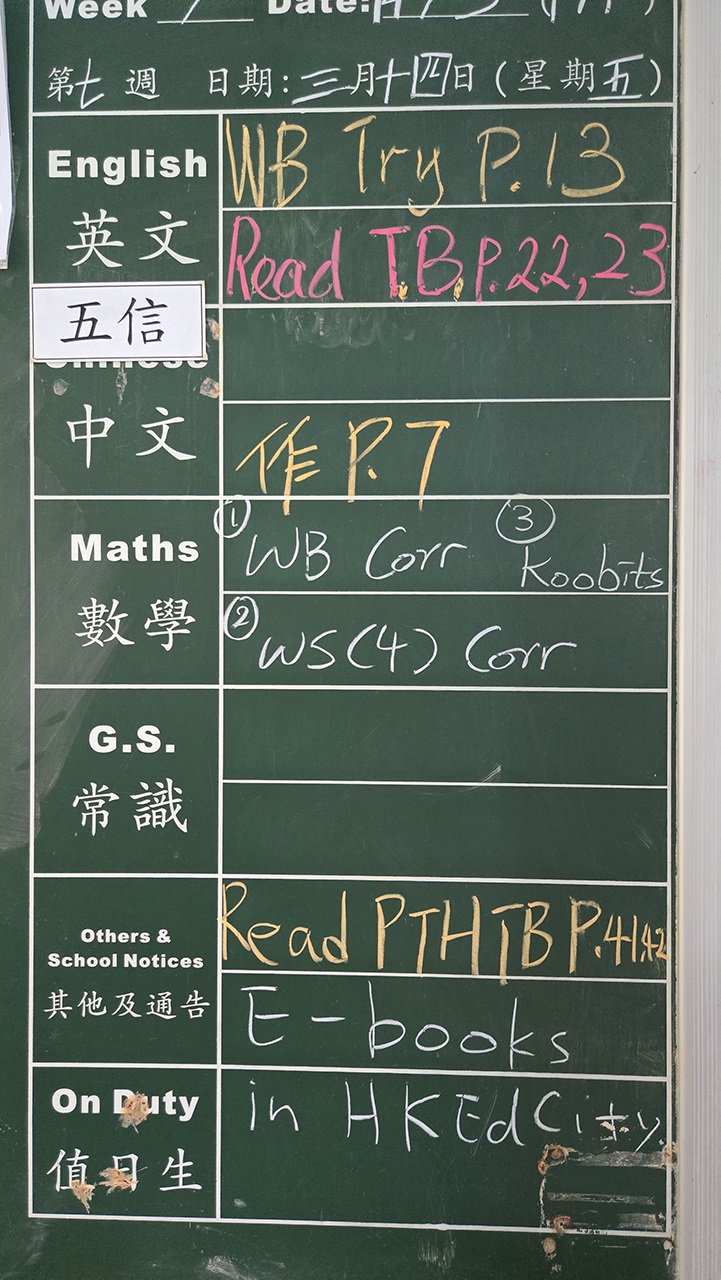 Week 7 Date: 14/3 (Fri)
第七週 日期:三月十四日(星期五)
English
英文
WB Try P.13
Read T.B.P.22,23
五信
Chinese
中文
作 P.7
Maths
數學
① WB Corr ③ Koobits
② WS(4) Corr
G.S.
常識
Others &
School Notices
其他及通告
Read PTH TB P.41,42
E-books
On Duty
值日生
in HKEdCity